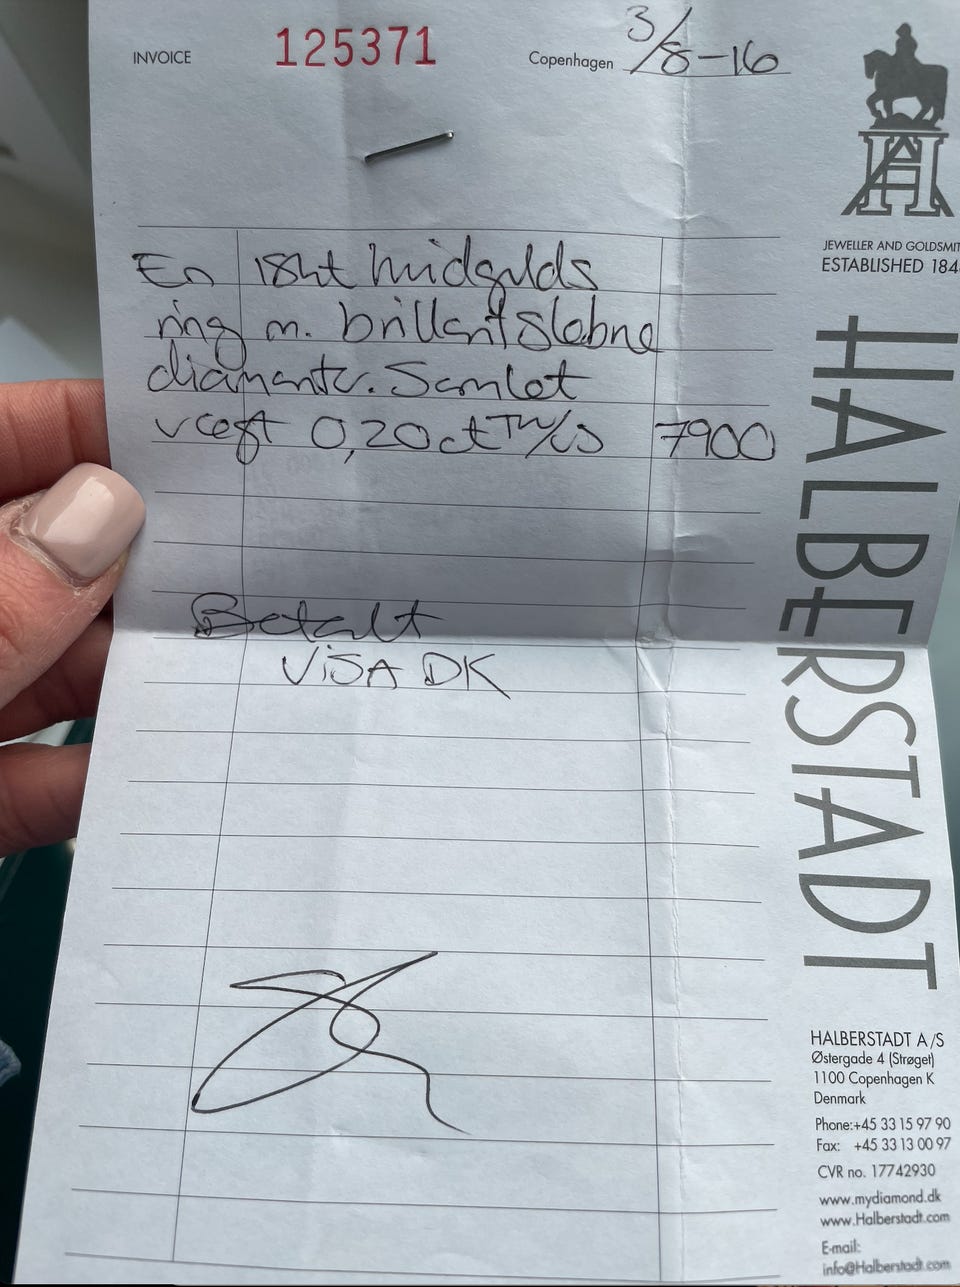 INVOICE 125371 Copenhagen 3/8-16
JEWELLER AND GOLDSMIT
ESTABLISHED 184
En 18kt hvidgulds
ring m. brillantslebne
diamanter. Samlet
vægt 0,20ct TW/cs 7900
Betalt
VISA DK
HALBERSTADT
HALBERSTADT A/S
Østergade 4 (Strøget)
1100 Copenhagen K
Denmark
Phone:+45 33 15 97 90
Fax: +45 33 13 00 97
CVR no. 17742930
www.mydiamond.dk
www.Halberstadt.com
E-mail:
info@Halberstadt.com